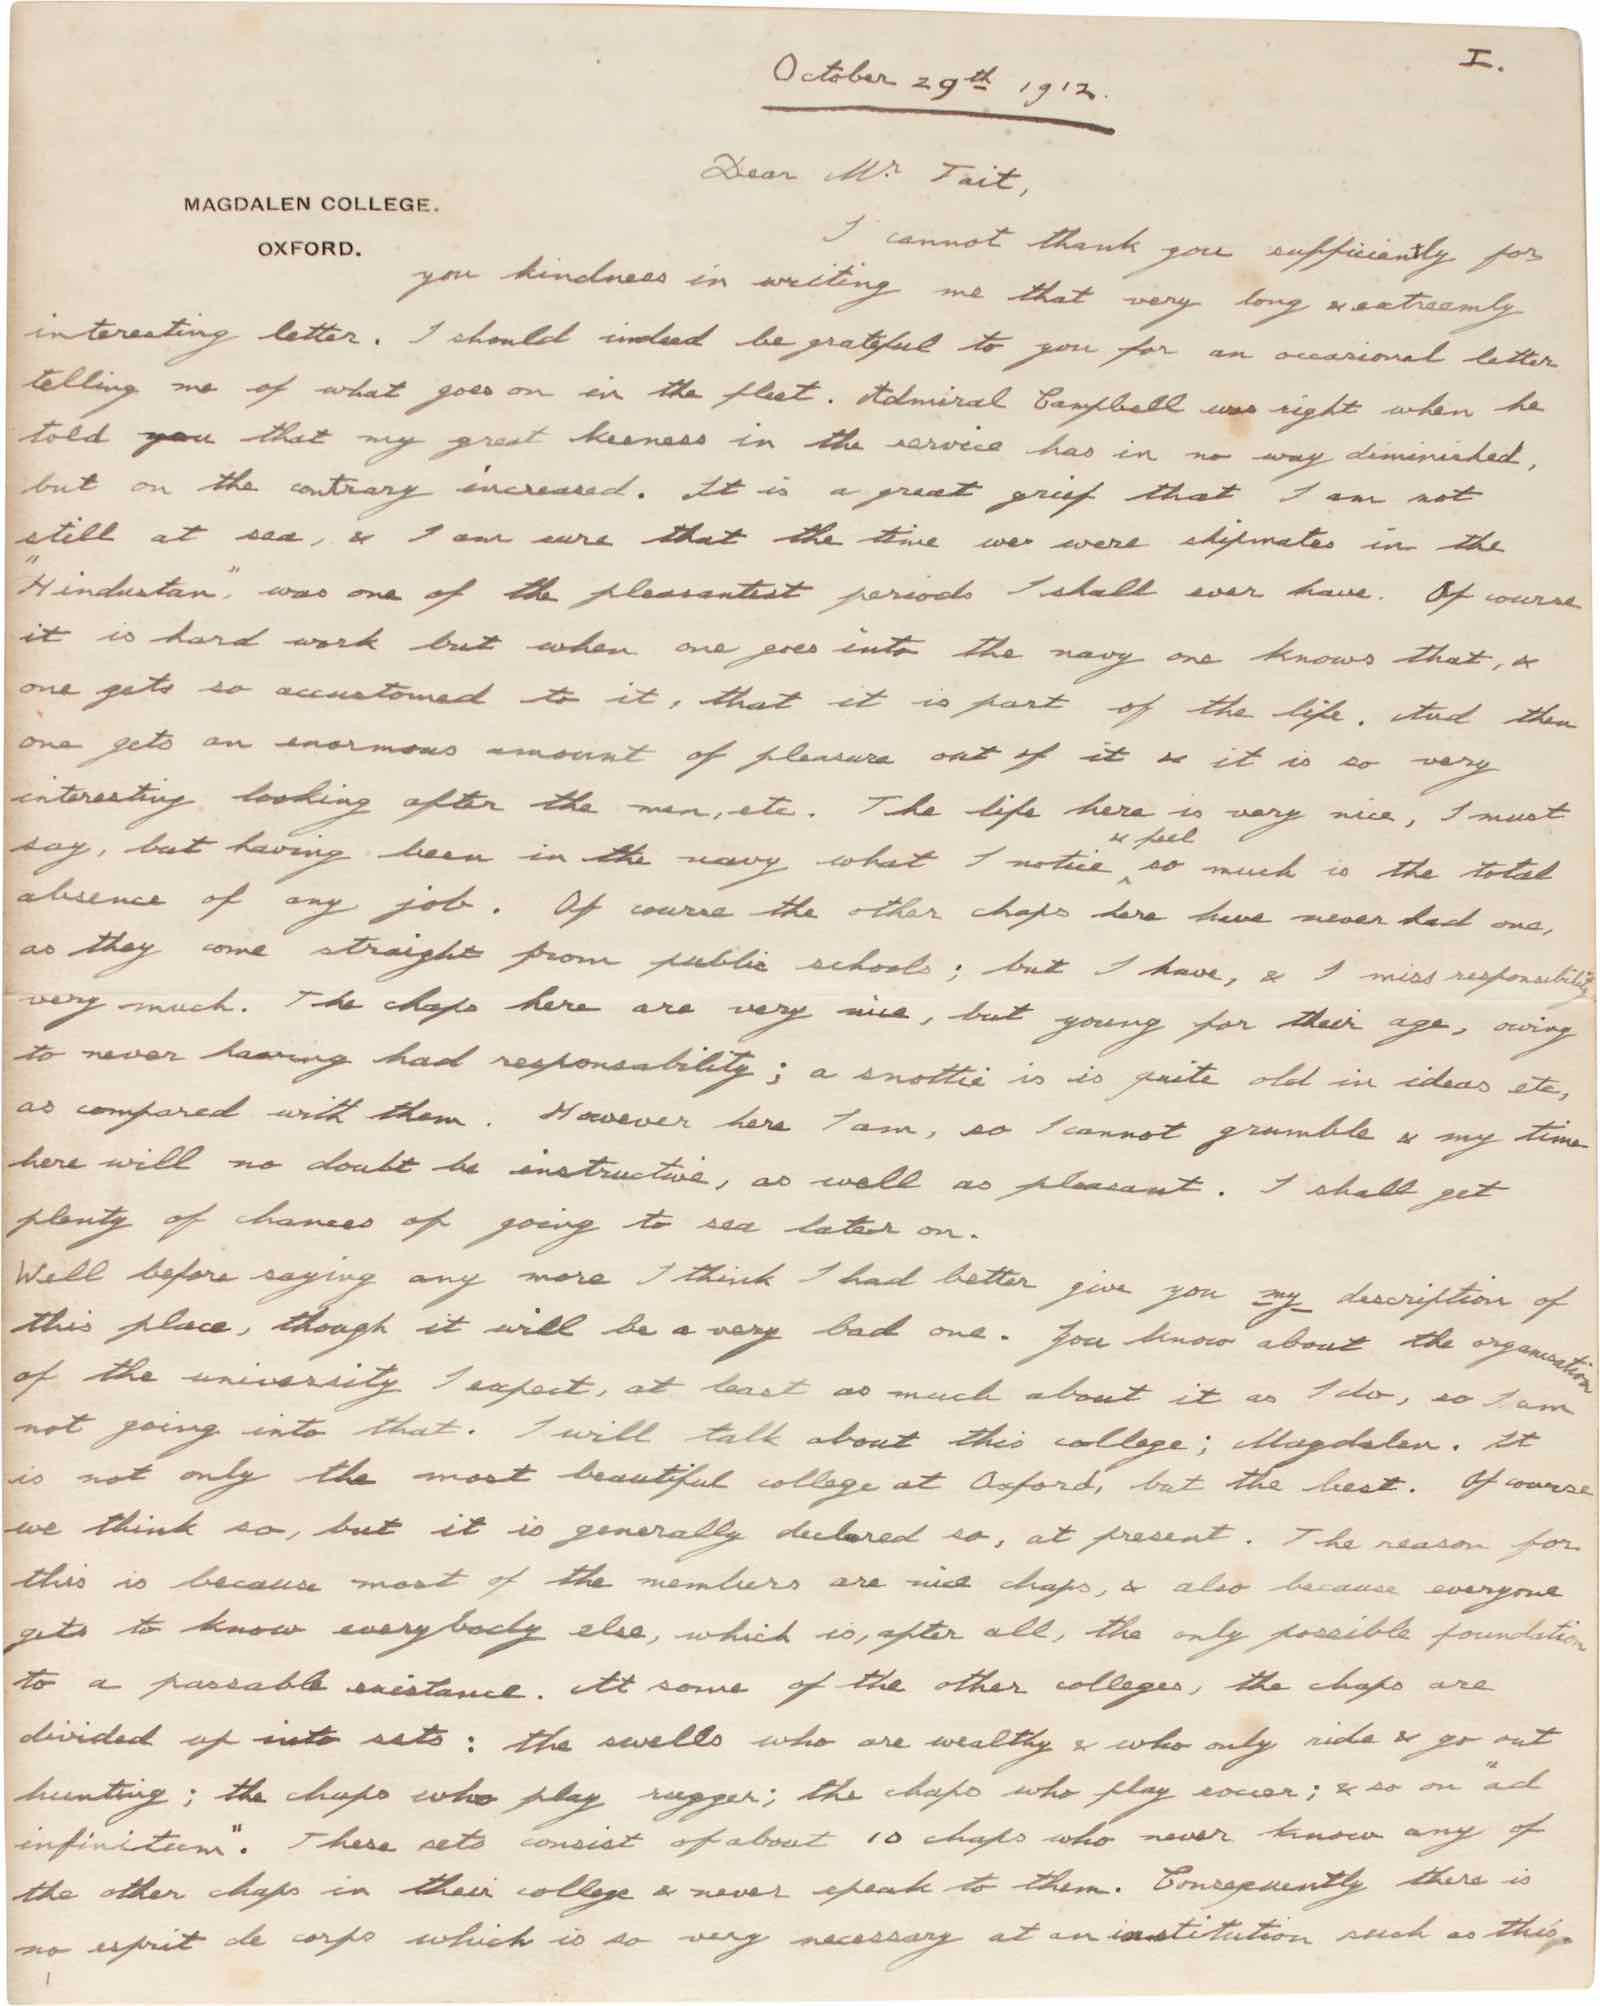 I.
October 29th 1912.
Dear Mr Tait,
MAGDALEN COLLEGE.
OXFORD.
I cannot thank you sufficiently for
you kindness in writing me that very long & extreemly
interesting letter. I should indeed be grateful to you for an occasional letter
telling me of what goes on in the fleet. Admiral Campbell was right when he
told you that my great keeness in the service has in no way diminished,
but on the contrary increased. It is a great grief that I am not
still at sea, & I am sure that the time we were shipmates in the
"Hindustan", was one of the pleasantest periods I shall ever have. Of course
it is hard work but when one goes into the navy one knows that, &
one gets so accustomed to it, that it is part of the life. And then
one gets an enormous amount of pleasure out of it & it is so very
interesting looking after the men, etc. The life here is very nice, I must
& feel
say, but having been in the navy what I notice ^ so much is the total
absence of any job. Of course the other chaps here have never had one,
as they come straight from public schools; but I have, & I miss responsibility
very much. The chaps here are very nice, but young for their age, owing
to never having had responsability; a snottie is is quite old in ideas etc,
as compared with them. However here I am, so I cannot grumble & my time
here will no doubt be instructive, as well as pleasant. I shall get
plenty of chances of going to sea later on.
Well before saying any more I think I had better give you my description of
this place, though it will be a very bad one. You know about the organisation
of the university I expect, at least as much about it as I do, so I am
not going into that. I will talk about this college; Magdalen. It
is not only the most beautiful college at Oxford, but the best. Of course
we think so, but it is generally declared so, at present. The reason for
this is because most of the members are nice chaps, & also because everyone
gets to know everybody else, which is, after all, the only possible foundation
to a passable existance. At some of the other colleges, the chaps are
divided up into sets: the swells who are wealthy & who only ride & go out
hunting; the chaps who play rugger; the chaps who play soccer; & so on "ad
infinitum". These sets consist of about 10 chaps who never know any of
the other chaps in their college & never speak to them. Consequently there is
no esprit de corps which is so very necessary at an institution such as this.